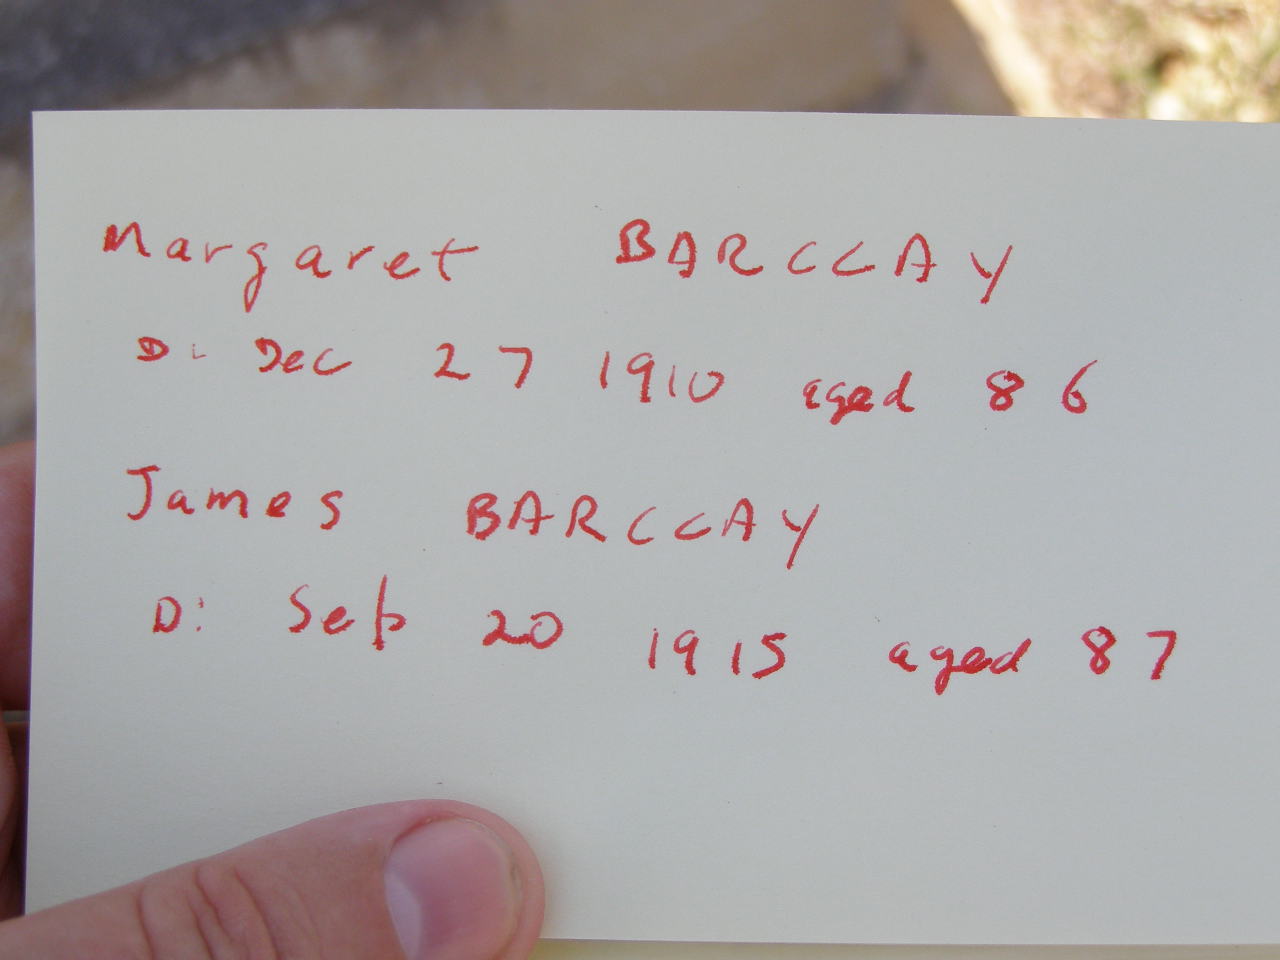 Margaret BARCLAY
D: Dec 27 1910 aged 86
James BARCLAY
D: Sep 20 1915 aged 87